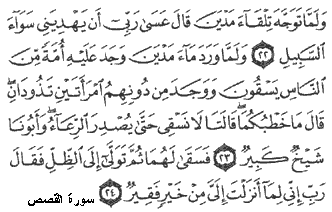 وَلَمَّا تَوَجَّهَ تِلْقَآءَ مَدْيَنَ قَالَ عَسَىٰ رَبِّىٓ أَن يَهْدِيَنِى سَوَآءَ
ٱلسَّبِيلِ ٢٢ وَلَمَّا وَرَدَ مَآءَ مَدْيَنَ وَجَدَ عَلَيْهِ أُمَّةً مِّنَ
ٱلنَّاسِ يَسْقُونَ وَوَجَدَ مِن دُونِهِمُ ٱمْرَأَتَيْنِ تَذُودَانِ ۖ
قَالَ مَا خَطْبُكُمَا ۖ قَالَتَا لَا نَسْقِى حَتَّىٰ يُصْدِرَ ٱلرِّعَآءُ ۖ وَأَبُونَا
شَيْخٌ كَبِيرٌ ٢٣ فَسَقَىٰ لَهُمَا ثُمَّ تَوَلَّىٰٓ إِلَى ٱلظِّلِّ فَقَالَ
رَبِّ إِنِّى لِمَآ أَنزَلْتَ إِلَىَّ مِنْ خَيْرٍ فَقِيرٌ ٢٤ سورة القصص